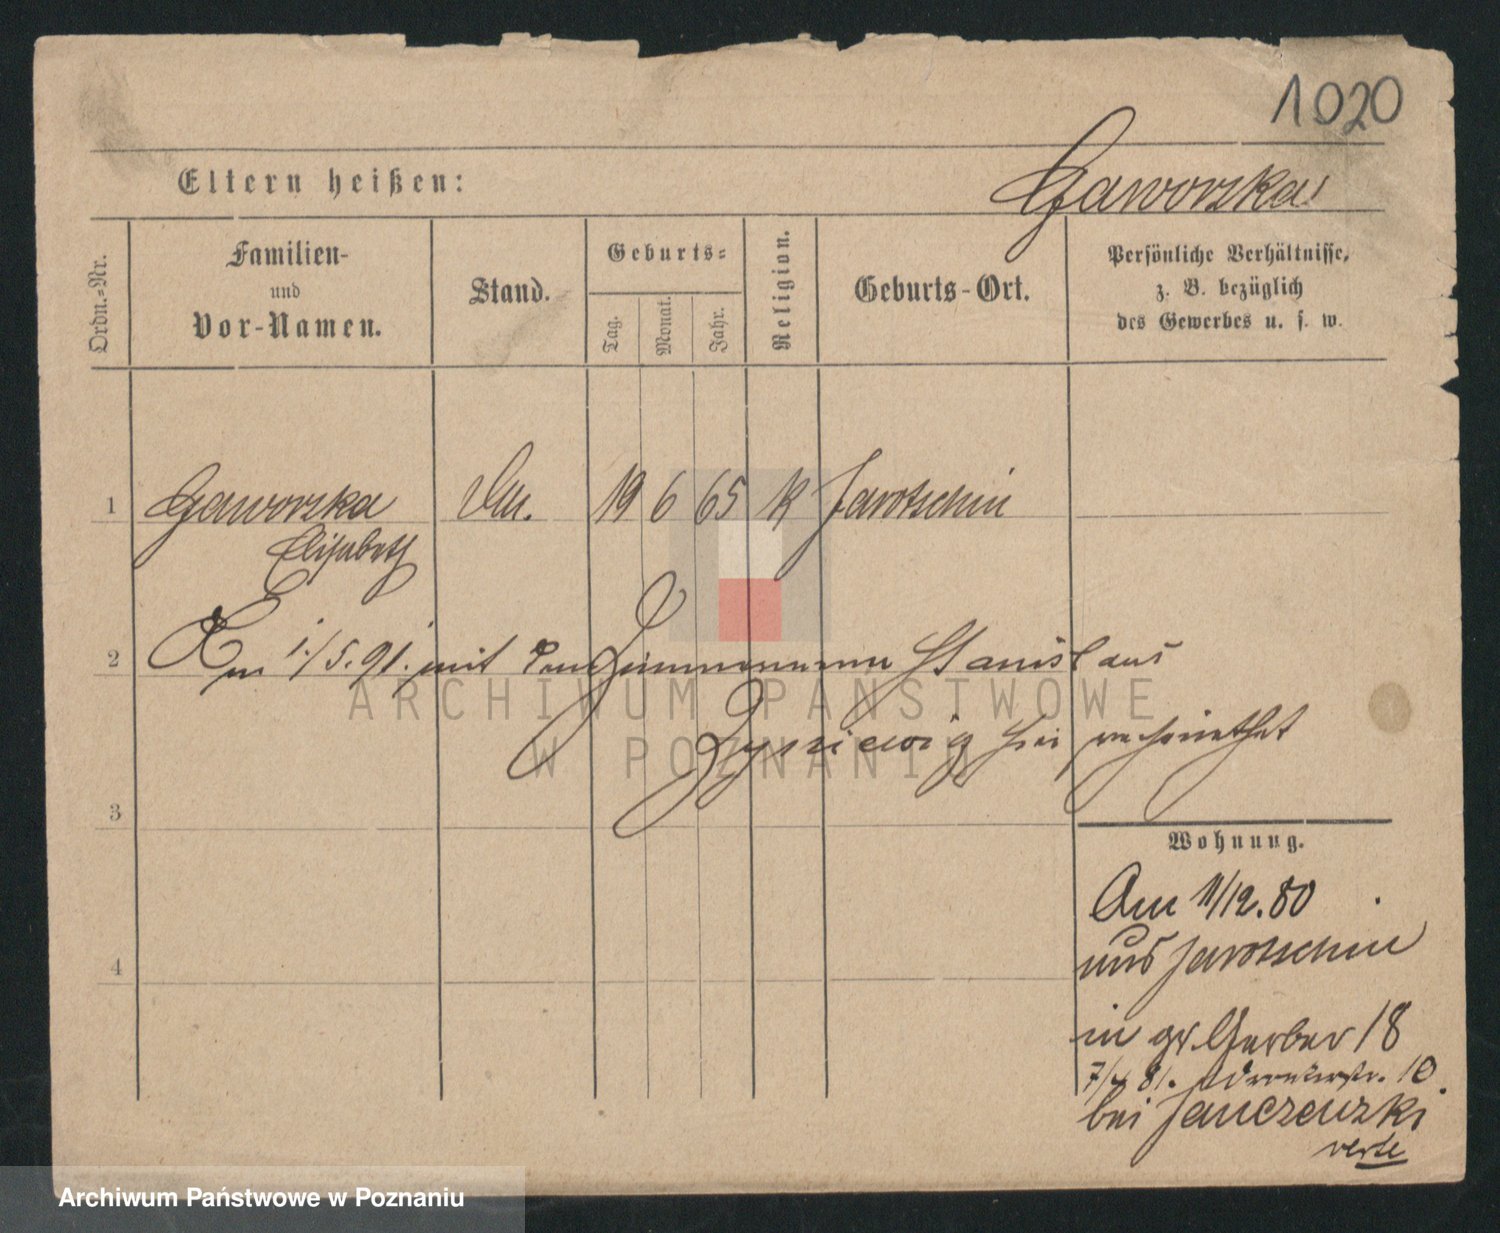 1020
Gaworska
Eltern heißen:
Ordn.-Nr.
Familien-
und
Vor-Namen.
Stand.
Geburts-
Tag.
Monat.
Jahr.
Religion.
Geburts-Ort.
Persönliche Verhältnisse,
z. B. bezüglich
des Gewerbes u. s. w.
1 Gaworska 19 6 65 K Jarotschin
Elisabeth
2 Am 1./5.91. mit dem Zimmermann Stanislaus
hier verheirathet
3
Wohnung.
Am 11/12.80
aus Jarotschin
4
in gr. Gerber 18
81. 10.
bei
verte
ARCHIWUM PAŃSTWOWE
W POZNANIU
Archiwum Państwowe w Poznaniu